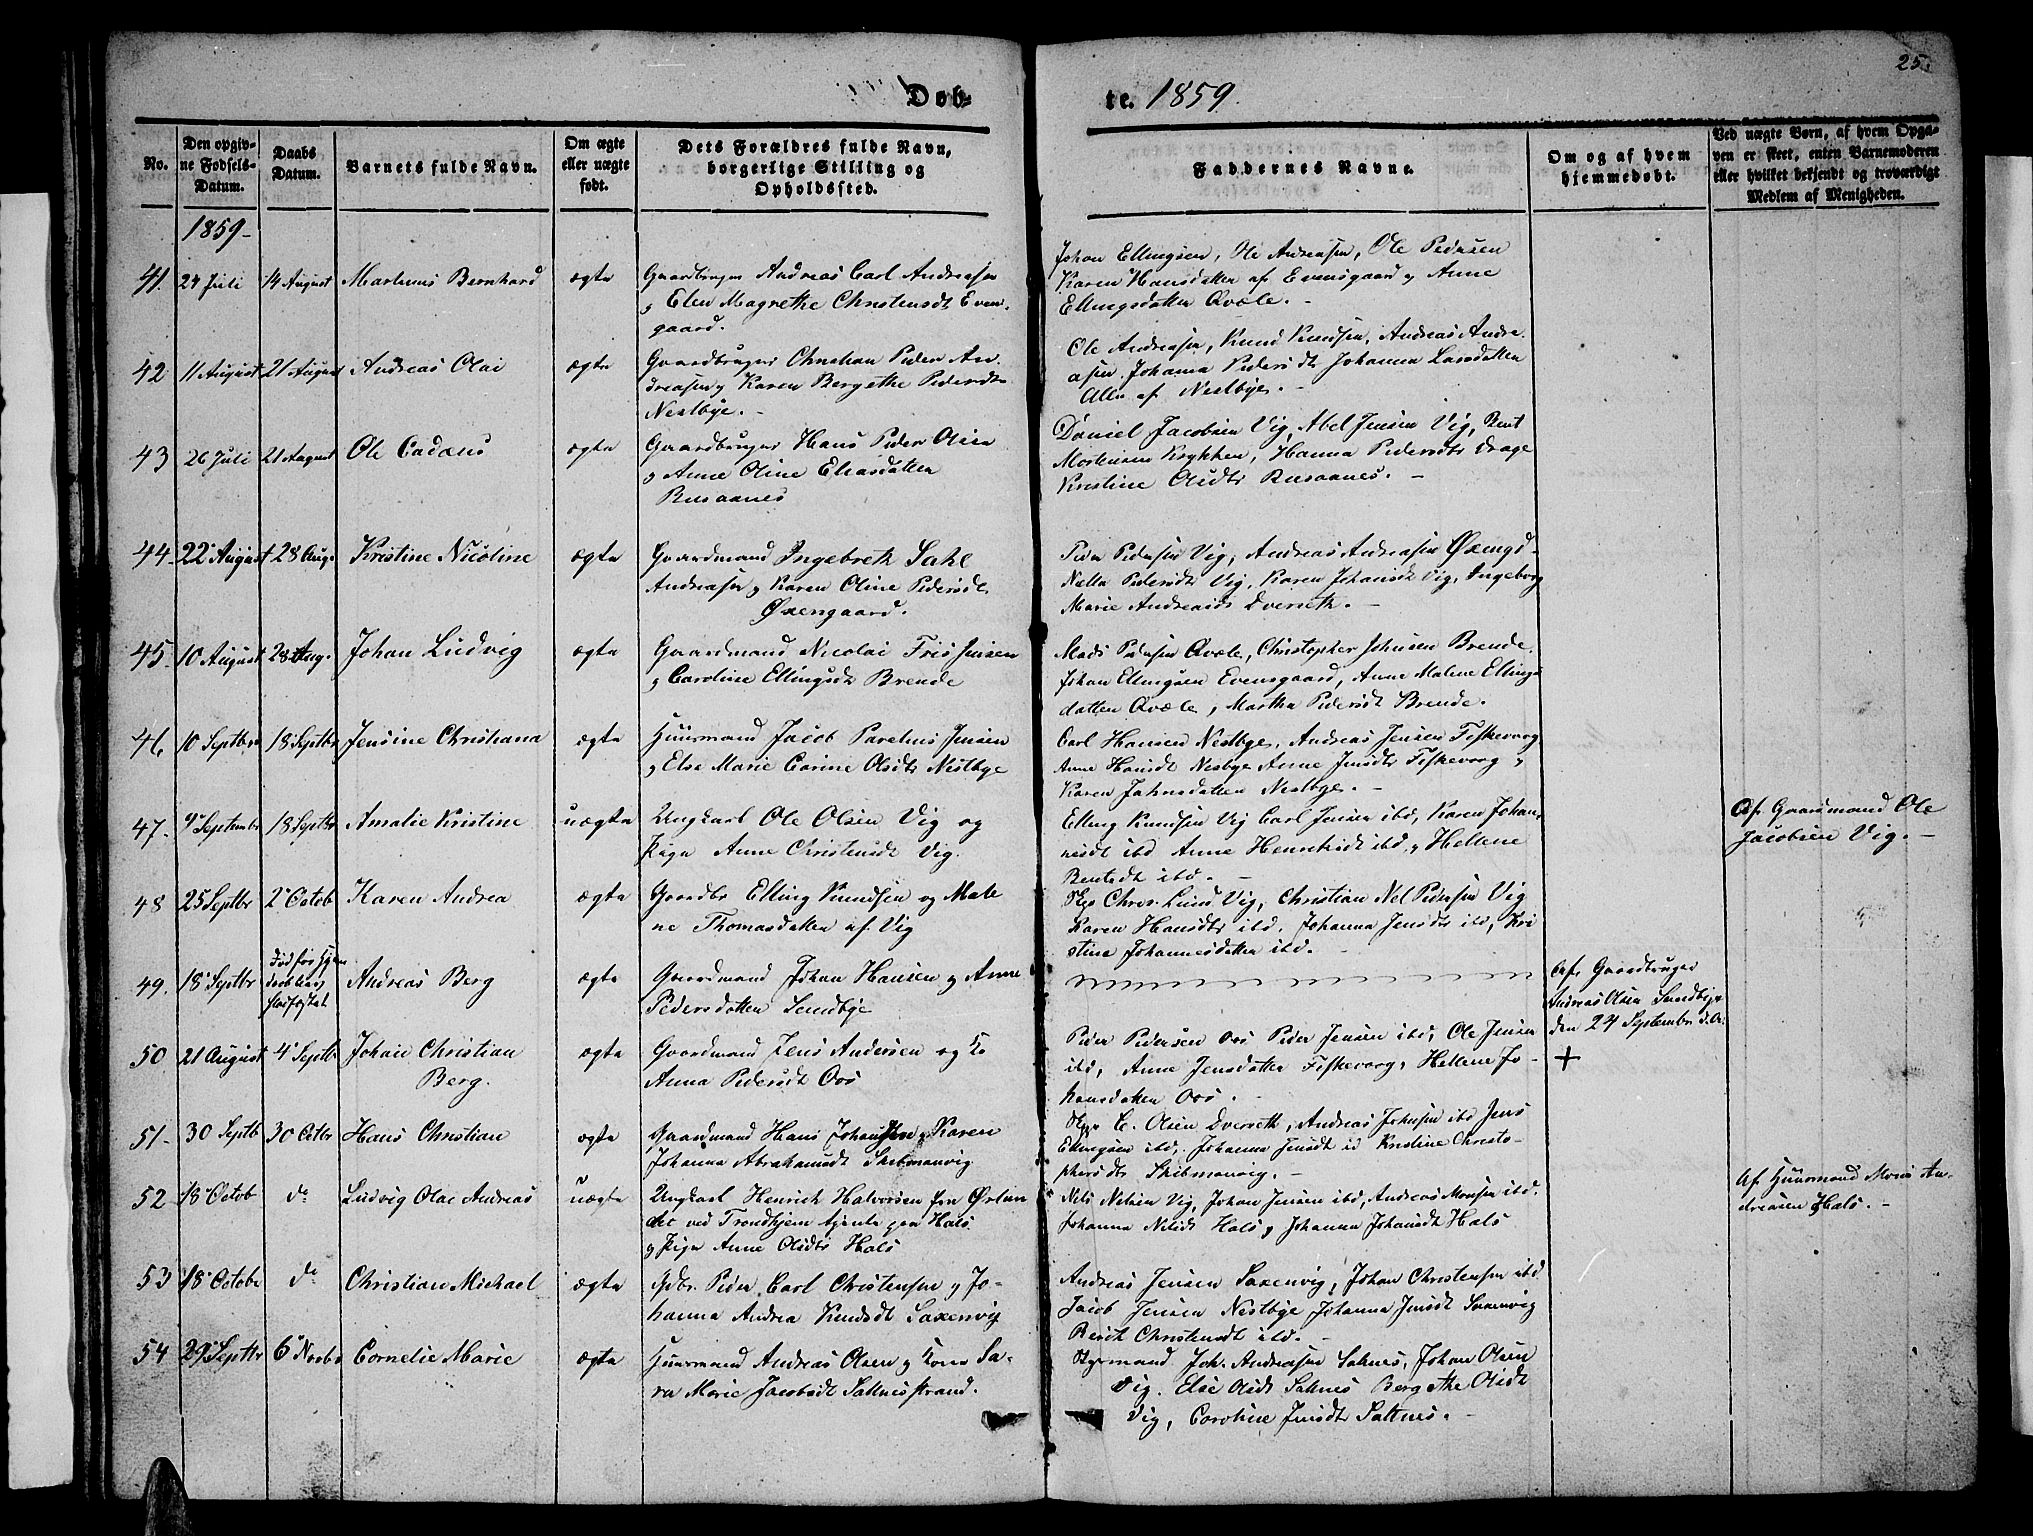 25.
Døb-
te. 1859.
No.
Den opgiv-
ne Fødsels-
Datum.
Daabs
Datum.
Barnets fulde Navn.
Om ægte
eller uægte
født.
Dets Forældres fulde Navn,
borgerlige Stilling og
Opholdssted.
Faddernes Navne.
Om og af hvem
hjemmedøbt.
Ved uægte Børn, af hvem Opga-
ven er skeet, enten Barnemoderen
eller hvilket bekjendt og troværdigt
Medlem af Menigheden.
1859-
41. 24 Juli 14 August Marlinus Bernhard ægte
Gaardbruger Andreas Carl Andreasen
og Elen Magrethe Christensdt Even-
gaard.
Johan Ellingsen, Ole Andreasen, Ole Pedersen
Karen Hansdatter af Evensgaard og Anne
Ellingsdatter Qvæle. -
42 11 August 21 August Andreas Olai ægte
Gaardbruger Christian Peder An-
dreasen og Karen Bergethe Pedersdtr
Nestbye. -
Ole Andreasen, Knud Knudsen, Andreas Andre-
asen. Johanna Pedersdt Johanna Larsdatter
Alle af Nestbye. -
43 26 Juli 21 August Ole ægte
Gaardbruger Hans Peder Olsen
og Anne Oline Eliasdatter
Rusaanes
Daniel Jacobsen Vig, Abel Jensen Vig, Bent
Mortensen Krykken, Hanna Pedersdtr Drage
Kristine Olsdtr Rusaanes. -
44- 22 August 28 Aug. Kristine Nicoline ægte
Gaardmand Ingebreth Sahl
Andreasen og Karen Oline Pedersdt
Øxengaard.
Peder Pedersen Vig, Andreas Andreasen Øxengd-
Pedersdtr Vig, Karen Johansdt Vig, Ingeborg
Marie Andreasdt Dverseth. -
45. 10 August 28 Aug. Johan Ludvig ægte
Gaardmand Nicolai Friis Jensen
og Caroline Ellingsdt Brende
Mads Pedersen Qvæle, Christopher Johnsen Brende.
Johan Ellingsen Evensgaard, Anne Malene Ellings
datter Qvæle, Martha Pedersdt Brende.
46. 10 Septbr 18 Septbr Jensine Christiana ægte
Huusmand Jacob Parelius Jensen
og Else Marie Carine Olsdtr Nestbye
Carl Hansen Nestbye, Andreas Jensen Fiskevaag
Anne Hansdt Nesbye Anne Jensdtr Fiskevaag og
Karen Jahnsdatter Nestbye. -
47. 9 Septembr 18 Septbr Amalie Kristine uægte
Ungkarl Ole Olsen Vig og
Pige Anne Christensdt Vig.
Elling Knudsen Vig Carl Jensen ibd, Karen Johan-
nesdt ibd Anne ibd, og Hellene
Bentsdt ibd. -
Af Gaardmand Ole
Jacobsen Vig. -
48 25 Septbr 2 Octob Karen Andrea ægte
Gaardbr Elling Knudsen og Male
ne Thomasdatter af Vig
Chr. Lund Vig, Christian Nel Pedersen Vig
Karen Hansdtr ibd. Johanna Jensdtr ibd, Kri
stine Johannesdatter ibd.
49. 18 Septbr Død før Hjem
daaben
stadfæstet Andreas Berg ægte
Gaardmand Johan Hansen og Anne
Pedersdatter Sundbye
Af Gaardbruger
Andreas Olsen Sundbye
den 24 Septembr d.A.
50 21 August 4 Septbr Johan Christian
Berg. ægte
Gaardmand Jens Andersen og Ko
Anna Pedersdt Oos
Peder Pedersen Oos Peder Jensen ibd, Ole Jensen
ibd, Anne Jensdatter Fiskevaag, Hellene Jo-
hansdatter Oos. -
+
51- 30 Septb 30 Octbr Hans Christian ægte
Gaardmand Hans Johansen og Karen
Johanna Abrahamsdt Skibmanvig
C. Olsen Dverseth, Andreas Johnsen ibd Jens
Ellingsen ibd, Johanna Jensdt id Kristine Christo-
phersdtr Skibmanvig. -
52 18 Octob do Ludvig Olai Andreas uægte
Ungkarl Henrich Halvorsen fra Ørlan
det ved Trondhjem tjente paa Hals
og Pige Anne Olsdtr Hals
Nels Nelsen Vig, Johan Jensen ibd, Andreas Monsen ibd.
Johanna Nelsdt Hals og Johanna Johansdt Hals
Af Huusmand Mons An-
dreasen Hals. -
53 18 Octobr do Christian Michael ægte
Gdbr. Peder Carl Christensen og Jo-
hanna Andrea Knudsdt Saxenvig
Andreas Jensen Saxenvig, Johan Christensen ibd
Jacob Jensen Nestbye Johanna Jensdt Saxenvig
Christensdt ibd. -
54 29 Septbr 6 Novbr Cornelie Marie ægte
Huusmand Andreas Olsen og Kone Sa-
ra Marie Jacobsdt Saltnesstrand.
Styrmand Joh. Andreasen Saltnes, Johan Olsen
Vig. Else Olsdt Saltnes Bergethe Olsdt
Vig, Caroline Jensdtr Saltnes. -